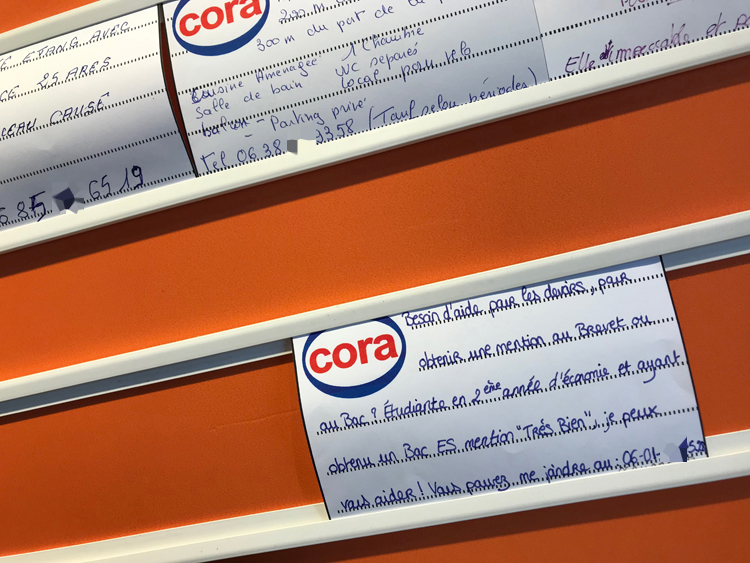 E ETANG AVEC
CE 25 ARES
EAU CAUSE
6 85 65 19
cora
300m du part de la
Cuisine Aménagée 1 Chambre
Salle de bain WC séparés
balcon - Parking privé local pour vélo
Tel 06.38 23.58 (Tarif selon périodes)
Elle impeccable et
cora
Besoin d'aide pour les devoirs, pour
obtenir une mention au Brevet ou
au Bac ? Étudiante en 2ème année d'économie et ayant
obtenu un Bac ES mention "Très Bien", je peux
vous aider ! Vous pouvez me joindre au : 06.01.